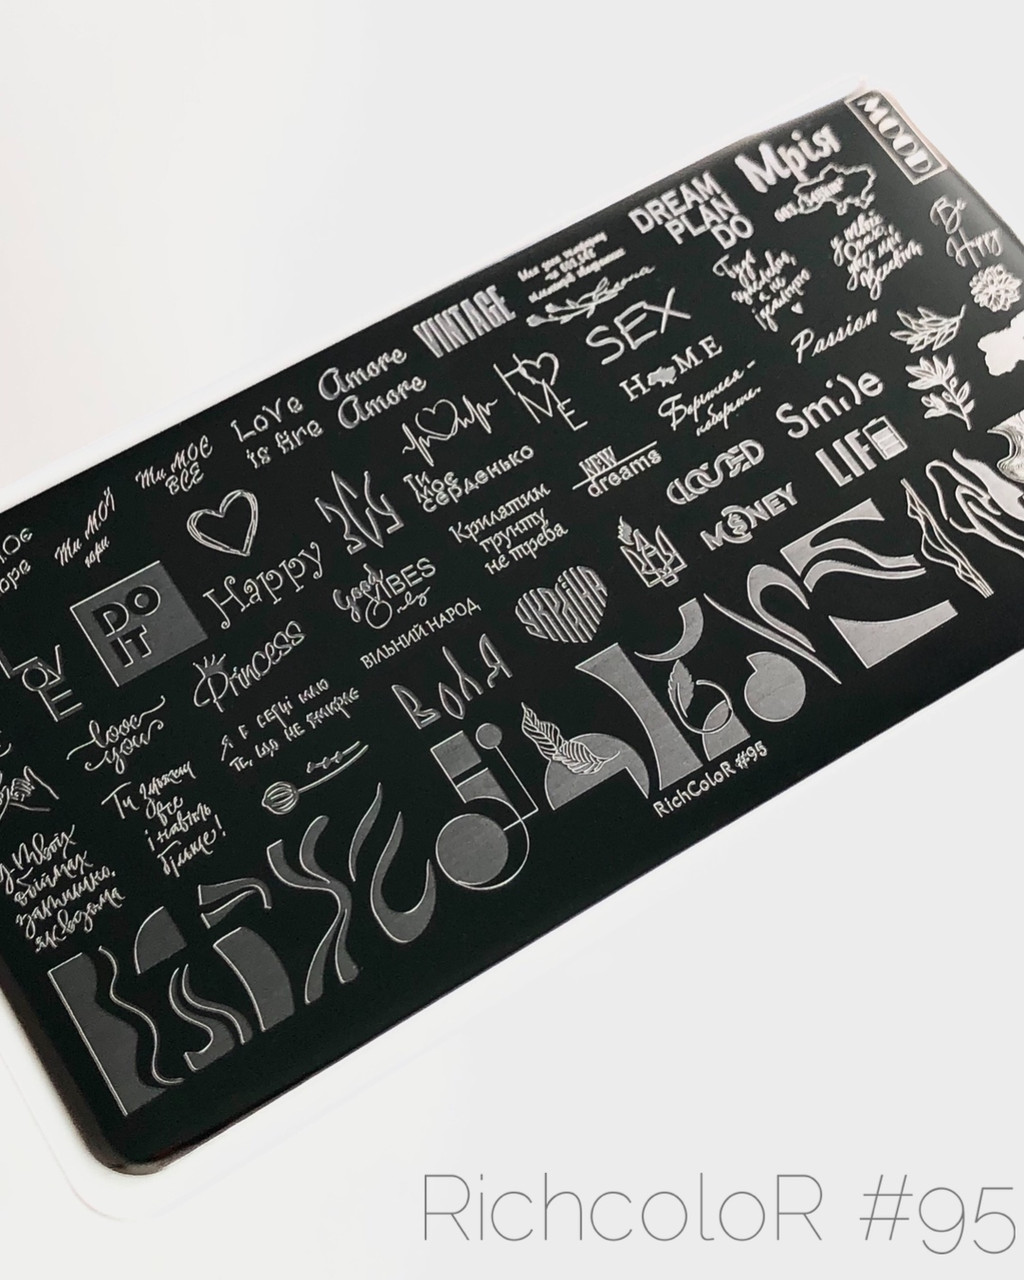 MOOD
Мрія
DREAM
PLAN
DO
Be
VINTAGE
SEX
Passion
Amore
Amore
LoVe
is fire
HOME
HOME
Smile
LIFE
Боремся -
поборемо.
CLOSED
NEW
dreams
MONEY
Ти МОЄ
ВСЕ
Ти МОЇ
Ти
Моє
серденько
Крилатим
ґрунту
не треба
Happy
Good
VIBES
only
ВІЛЬНИЙ НАРОД
УКРАЇНА
DO
IT
LOVE
Princess
Воля
love
you
Я В СЕРЦІ МАЮ
ТЕ, ЩО НЕ ВМИРАЄ
все
і навіть
більше!
у твоїх
обіймах
затишно,
як вдома
RichColoR #95
RichcoloR #95